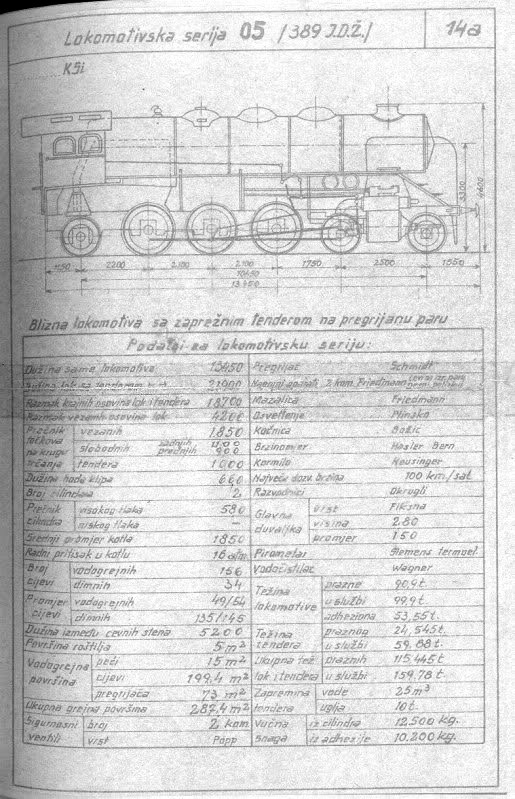 Lokomotivska serija 05 /389 J.D.Ž./ 14a
KSi
3300
4400
1150 2200 2100 2100 1750 2500 1550
13450
Blizna lokomotiva sa zaprežnim tenderom na pregrijanu paru
Podatci za lokomotivsku seriju:
Dužina same lokomotive 13450
21900
Razmak krajnih osovina lok i tendera 18700
Razmak vezanih osovina lok. 4200
Prečnik točkova na krugu trčanja
vezanih 1850
slobodnih zadnjih 1100
prednjih 900
tendera 1000
Dužina hoda klipa 660
Broj cilindara 2
Prečnik cilindra
visokog tlaka 580
niskog tlaka –
Srednji promjer kotla 1850
Radni pritisak u kotlu 16
Broj cijevi
vodogrejnih 156
dimnih 34
Promjer cijevi
vodogrejnih 49/54
dimnih 135/145
Dužina između cevnih stena 5200
Površina roštilja 5m²
Vodogrejna površina
peći 15m²
cijevi 199,4 m²
pregrijača 73 m²
Ukupna grejna površina 287,4 m²
Sigurnosni ventili
broj 2 kom.
vrst Pöpp
Pregrijač Schmidt
2 kom. Friedmann
Mazalica Friedmann
Osvetlenje Plinsko
Kočnica Božić
Brzinomjer Hasler Bern
Kormilo Heusinger
Najveća dozv. brzina 100 km/sat
Razvodnici Okrugli
Glavna duvaljka
vrst Fiksna
visina 280
promjer 150
Pirometar Siemens termoel.
Vodočistilac Wagner
Težina lokomotive
prazne 90,9t.
u službi 99,9t
adheziona 53,55t.
Težina tendera
praznog 24,545t.
u službi 59.88t.
Ukupna tež. lok i tendera
praznih 115,445t
u službi 159.78t.
Zapremina tendera
vode 25m³
uglja 10t.
Vučna snaga
iz cilindra 12.500 kg.
iz adhezije 10.200 kg.